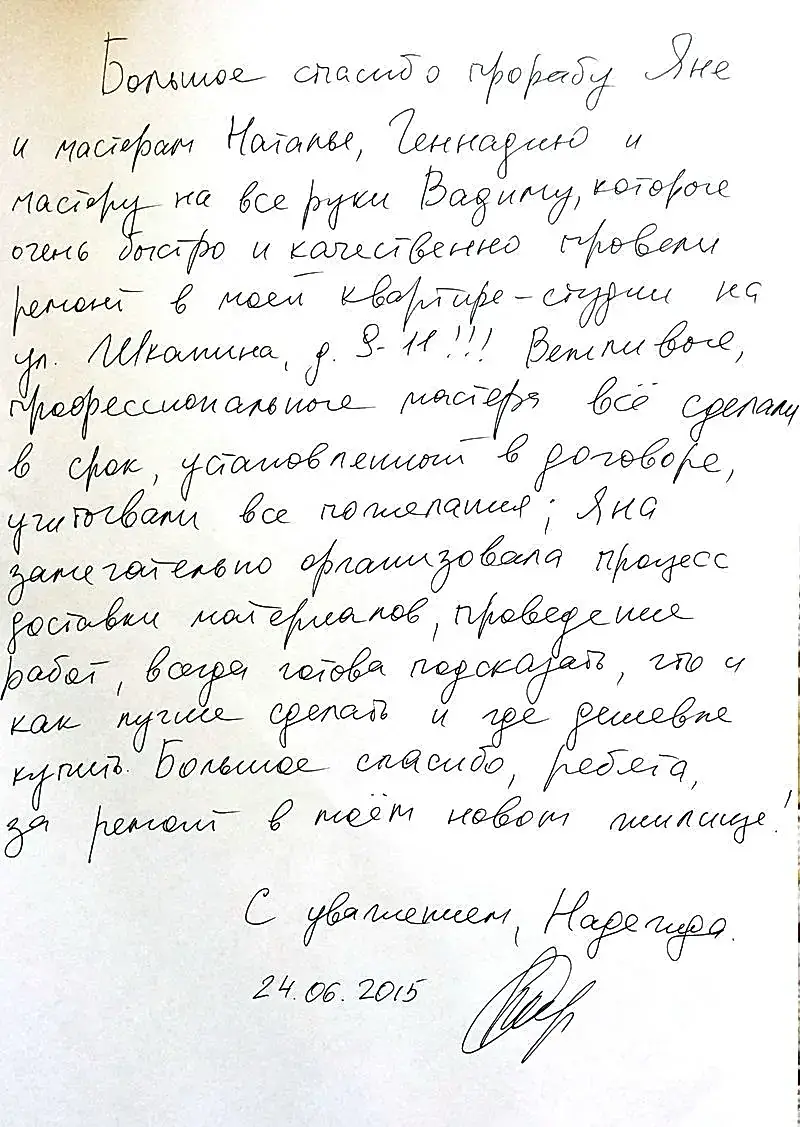 Большое спасибо прорабу Яне
и мастерам Наталье, Геннадию и
мастеру на все руки Вадиму, которые
очень быстро и качественно провели
ремонт в моей квартире-студии на
ул. Шкапина, д. 9-11!!! Вежливые,
профессиональные мастера всё сделали
в срок, установленный в договоре,
учитывали все пожелания; Яна
замечательно организовала процесс
доставки материалов, проведения
работ, всегда готова подсказать, что и
как лучше сделать и где дешевле
купить. Большое спасибо, ребята,
за ремонт в моём новом жилище!
С уважением, Надежда.
24.06.2015